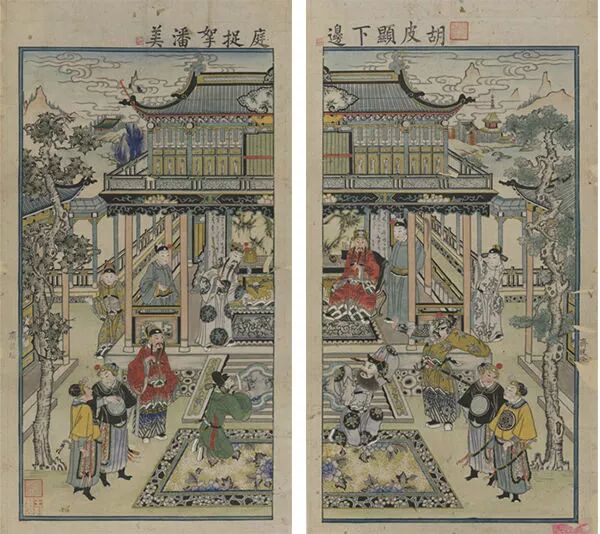 胡皮顯下邊
庭捉拏潘美